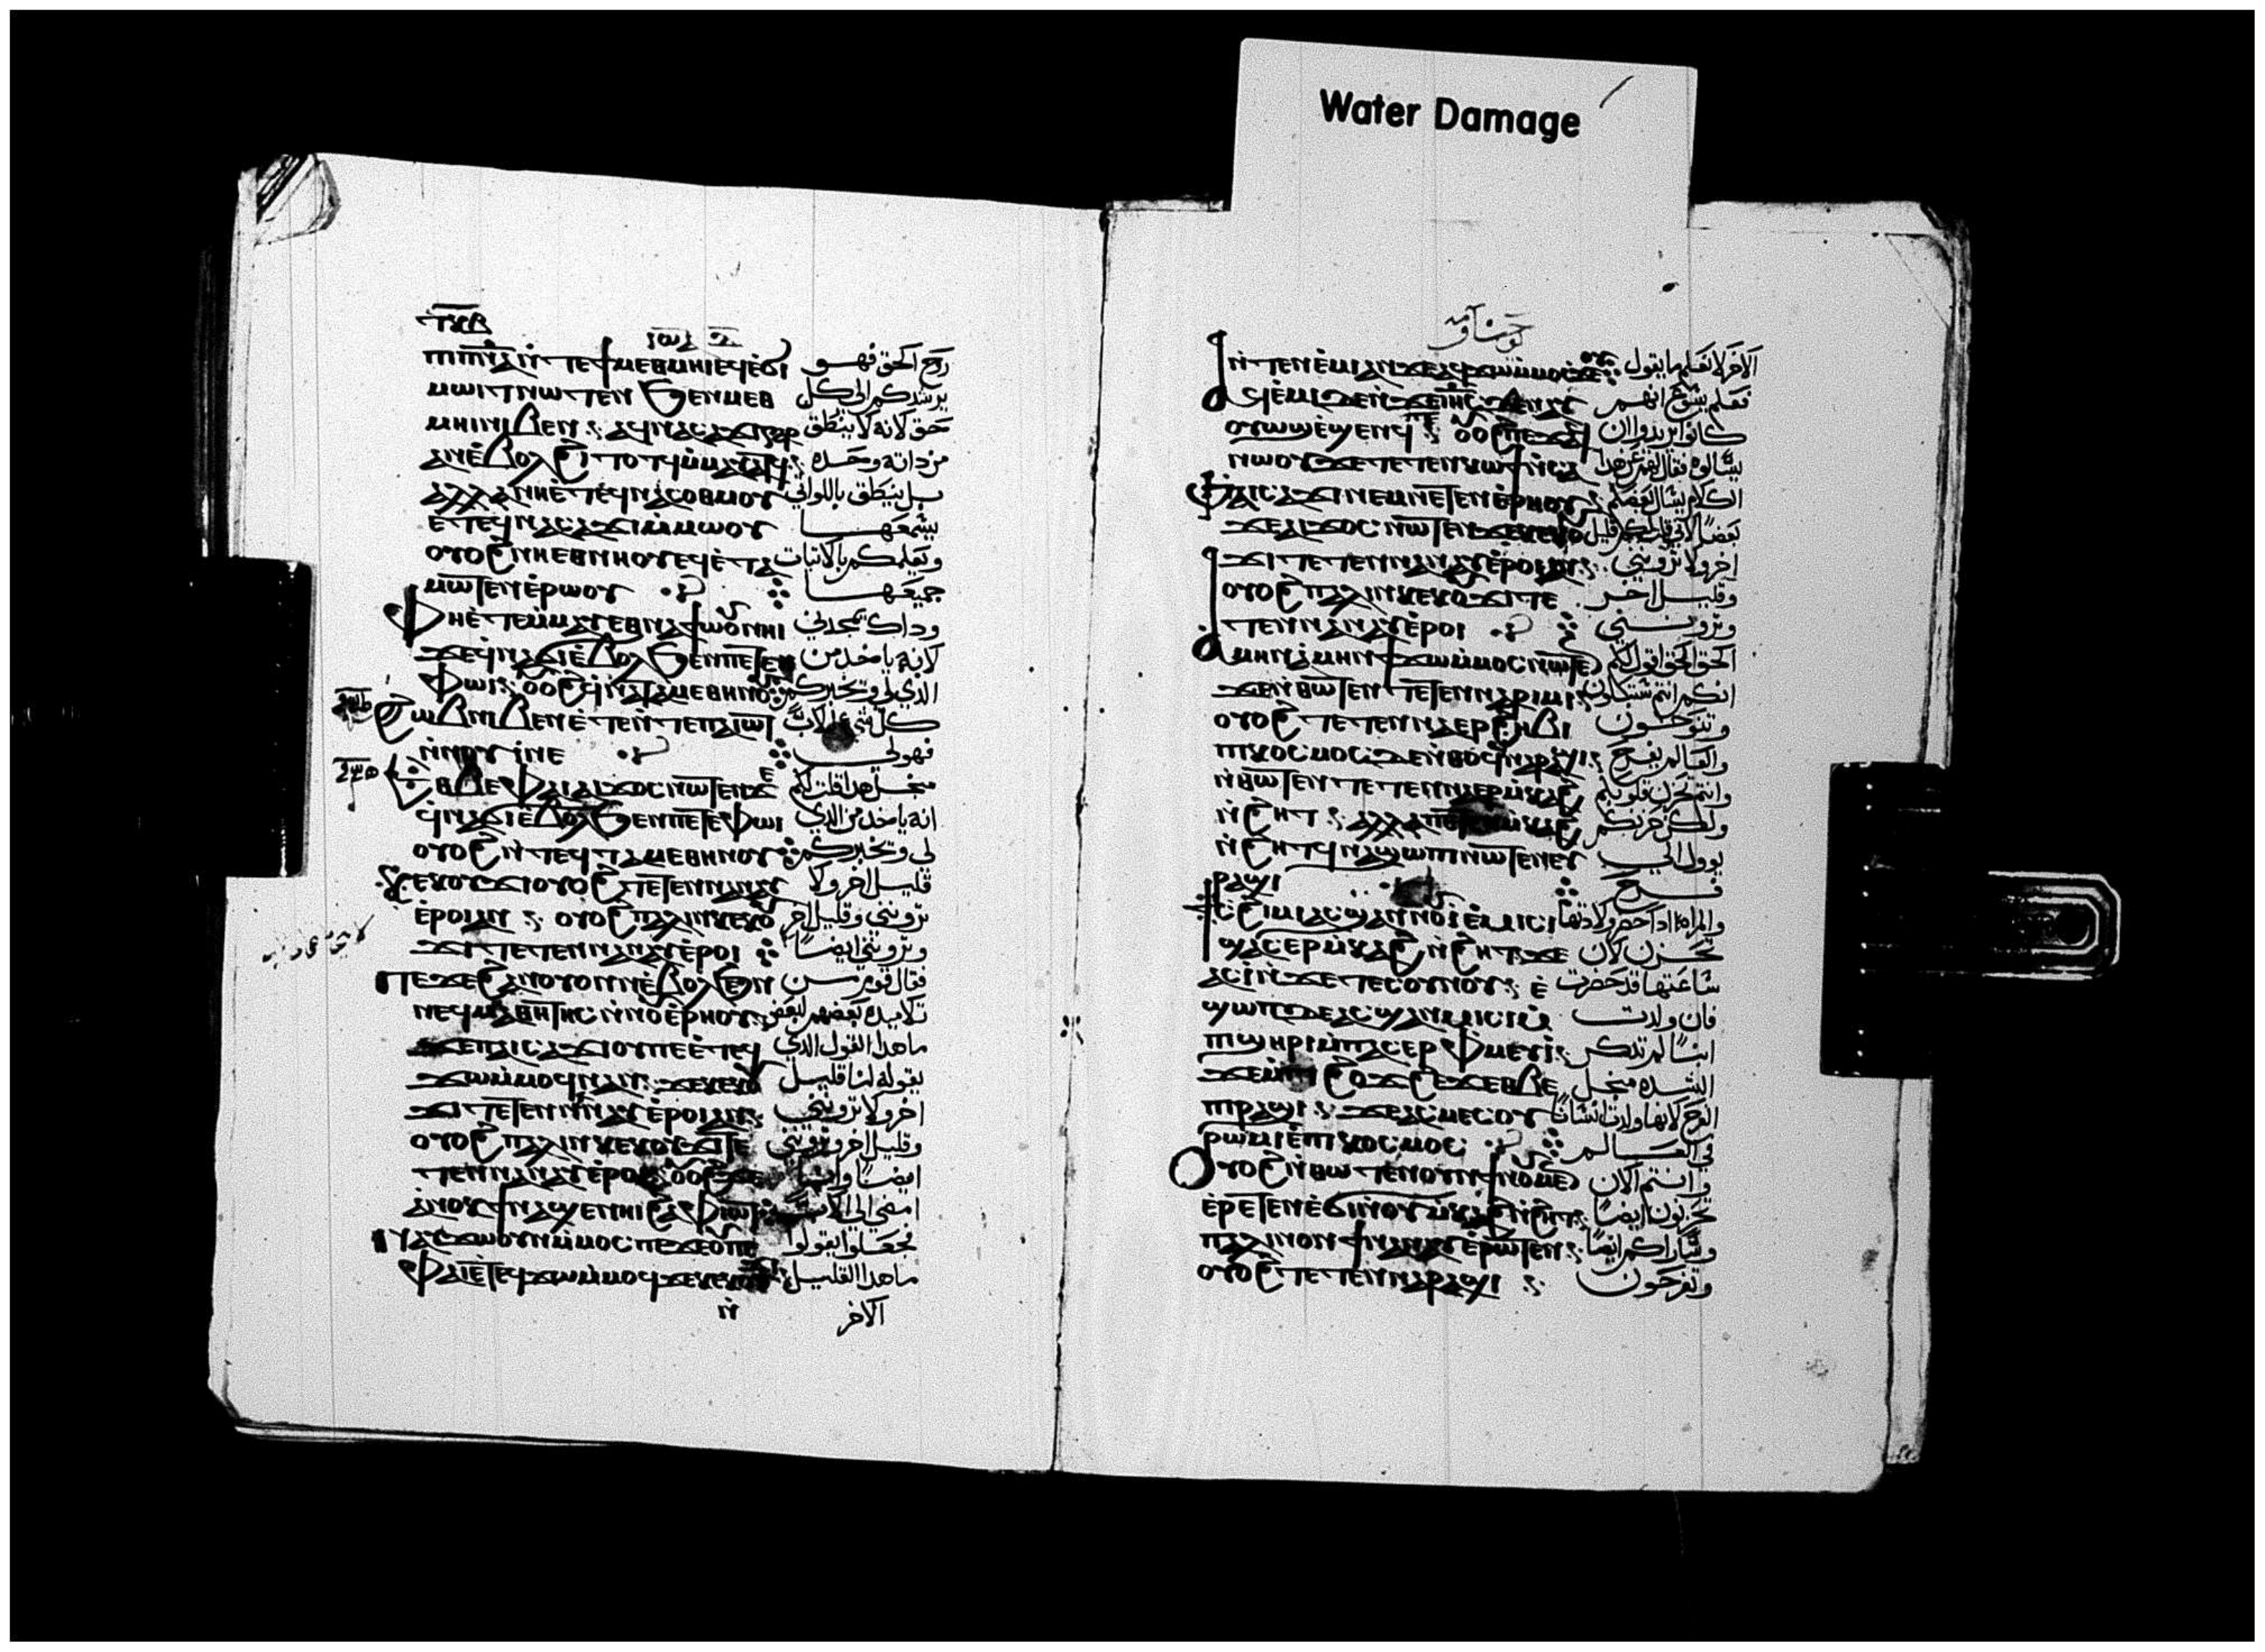 Water Damage
ⲓⲱⲁ
ⲡⲓⲡⲛⲁ ⲛ̀ⲧⲉϯⲙⲉⲑⲙⲏⲓ ⲉϥⲉ̀ϭⲓ روح الحق فهو
ⲙⲱⲓⲧ ⲛⲱⲧⲉⲛ ϧⲉⲛ ⲙⲉⲑ يرشدكم الى كل
ⲙⲏⲓ ⲛⲓⲃⲉⲛ حق لانه لا ينطق
ⲁⲛ ⲉ̀ⲃⲟⲗ ϩⲓⲧⲟⲧϥ ⲙ̀ⲙⲁⲩⲁⲧϥ من داته وحده
ⲁⲗⲗⲁ ⲛⲏ ⲉ̀ⲧⲉϥⲛⲁⲥⲟⲑⲙⲟⲩ بل ينطق باللواتي
ⲉ̀ⲧⲉϥⲛⲁⲥⲁϫⲓ ⲙ̀ⲙⲱⲟⲩ يسمعها
ⲟⲩⲟϩ ⲛⲏ ⲉⲑⲛⲏⲟⲩ ⲉϥⲉ̀ⲧⲁ ويعلمكم بالاتيات
ⲙⲱⲧⲉⲛ ⲉ̀ⲣⲱⲟⲩ جميعها
ⲫⲏ ⲉ̀ⲧⲉⲙ̀ⲙⲁⲩ ⲉⲑⲛⲁϯⲱ̀ⲟⲩ ⲛⲏⲓ وداك يمجدني
ϫⲉ ϥ̀ⲛⲁϭⲓ ⲉ̀ⲃⲟⲗ ϧⲉⲛ ⲡⲉⲧⲉ لانه ياخد من
ⲫⲱⲓ ⲟⲩⲟϩ ϥ̀ⲛⲁⲧⲁⲙⲉⲑⲏⲛⲟⲩ الدي لي وتخبركم
ϩⲱⲃ ⲛⲓⲃⲉⲛ ⲉ̀ⲧⲉⲛ̀ⲧⲉ ⲡⲁⲓⲱⲧ كل شي للاب
ⲛ̀ⲛⲟⲩⲓ ⲛⲉ فهو لي
ⲉⲑⲃⲉ ⲫⲁⲓ ⲁⲓϫⲟⲥ ⲛⲱⲧⲉⲛ ϫⲉ من اجل هدا قلت لكم
ϥ̀ⲛⲁϭⲓ ⲉ̀ⲃⲟⲗ ϧⲉⲛ ⲡⲉⲧⲉ ⲫⲱⲓ انه ياخد من الدي
ⲟⲩⲟϩ ⲛ̀ⲧⲉϥⲧⲁⲙⲉⲑⲏⲛⲟⲩ لي وتخبركم
ⲕⲉⲕⲟⲩϫⲓ ⲟⲩⲟϩ ⲧⲉⲧⲉⲛⲛⲁⲛⲁⲩ قليل اخر ولا
ⲉ̀ⲣⲟⲓ ⲁⲛ ⲟⲩⲟϩ ⲡⲁⲗⲓⲛ ⲕⲉⲕⲟⲩ تروني وقليل اخر
ϫⲓ ⲧⲉⲧⲉⲛⲛⲁⲛⲁⲩ ⲉ̀ⲣⲟⲓ وتروني ايضا
ⲡⲉϫⲉ ϩⲁⲛⲟⲩⲟⲛ ⲛ̀ⲉ̀ⲃⲟⲗ ϧⲉⲛ فقال قوم من
ⲛⲉϥⲙⲁⲑⲏⲧⲏⲥ ⲛ̀ⲛⲟⲩⲉ̀ⲣⲏⲟⲩ تلاميده بعضهم لبعض
ϫⲉ ⲡⲁⲓⲥⲁϫⲓ ⲟⲩ ⲡⲉ ⲉ̀ⲧⲉϥ ما هدا القول الدي
ϫⲱ ⲙ̀ⲙⲟϥ ⲛⲁⲛ ϫⲉ ⲕⲉⲕⲟⲩ يقوله لنا قليل
ϫⲓ ⲧⲉⲧⲉⲛⲛⲁⲛⲁⲩ ⲉ̀ⲣⲟⲓ ⲁⲛ اخر ولا تروني
ⲟⲩⲟϩ ⲡⲁⲗⲓⲛ ⲕⲉⲕⲟⲩϫⲓ ⲧⲉ وقليل اخر وتروني
ⲧⲉⲛⲛⲁⲛⲁⲩ ⲉ̀ⲣⲟⲓ ⲟⲩⲟϩ ϫⲉ ايضا وانا
ⲁ̀ⲛⲟⲕ ϯⲛⲁϣⲉ ⲛⲏⲓ ϩⲁ ⲫⲓⲱⲧ امضي الى الاب
ⲛⲁⲩϫⲱ ⲟⲩⲛ ⲙ̀ⲙⲟⲥ ⲡⲉ ϫⲉ ⲟⲩ ⲡⲉ فجعلوا يقولوا
ⲫⲁⲓ ⲉ̀ⲧⲉϥϫⲱ ⲙ̀ⲙⲟϥ ϫⲉ ⲕⲉⲕⲟⲩϫⲓ ما هدا القليل
ⲛ̀ الاخر
ⲛ̀ⲧⲉⲛⲉ̀ⲙⲓ ⲁⲛ ϫⲉ ⲁϥϫⲱ ⲙ̀ⲙⲟⲥ ϫⲉ ⲟⲩ الاخر لا نعلم ما يقول
ⲁϥⲉ̀ⲙⲓ ⲇⲉ ⲛ̀ϫⲉ ⲓⲏⲥ ϫⲉ ⲛⲁⲩ فعلم يسوع انهم
ⲟⲩⲱϣ ⲉ̀ϣⲉⲛϥ ⲟⲩⲟϩ ⲡⲉϫⲁϥ كانوا يريدوا ان
ⲛⲱⲟⲩ ϫⲉ ⲧⲉⲧⲉⲛⲕⲱϯ ⲛ̀ⲥⲁ يسالوه فقال لهم عن هدا
ⲫⲁⲓ ⲥⲁϫⲓ ⲛⲉⲙ ⲛⲉⲧⲉⲛⲉ̀ⲣⲏⲟⲩ الكلام يسال بعضكم
ϫⲉ ⲁⲓϫⲟⲥ ⲛⲱⲧⲉⲛ ϫⲉ ⲕⲉⲕⲟⲩ بعضا لاني قلت لكم قليل
ϫⲓ ⲧⲉⲧⲉⲛⲛⲁⲛⲁⲩ ⲉ̀ⲣⲟⲓ ⲁⲛ اخر ولا تروني
ⲟⲩⲟϩ ⲡⲁⲗⲓⲛ ⲕⲉⲕⲟⲩϫⲓ ⲧⲉ وقليل اخر
ⲧⲉⲛⲛⲁⲛⲁⲩ ⲉ̀ⲣⲟⲓ وتروني
ⲁⲙⲏⲛ ⲁ̀ⲙⲏⲛ ϯϫⲱ ⲙ̀ⲙⲟⲥ ⲛⲱⲧⲉⲛ الحق الحق اقول لكم
ϫⲉ ⲛ̀ⲑⲱⲧⲉⲛ ⲧⲉⲧⲉⲛⲛⲁⲣⲓⲙⲓ انكم انتم ستبكون
ⲟⲩⲟϩ ⲧⲉⲧⲉⲛⲛⲁⲉⲣϩⲏⲃⲓ وتنوحون
ⲡⲓⲕⲟⲥⲙⲟⲥ ⲇⲉ ⲛ̀ⲑⲟϥ ⲛⲁⲣⲁϣⲓ والعالم يفرح
ⲛ̀ⲑⲱⲧⲉⲛ ⲧⲉⲧⲉⲛⲛⲁⲉⲣⲙ̀ⲕⲁϩ وانتم تحزن قلوبكم
ⲛ̀ϩⲏⲧ ⲁⲗⲗⲁ ⲡⲉⲧⲉⲛⲙ̀ⲕⲁϩ ولكن حزنكم
ⲛ̀ϩⲏⲧ ϥ̀ⲛⲁϣⲱⲡⲓ ⲛⲱⲧⲉⲛ ⲉⲩ يوول الى
ⲣⲁϣⲓ فرح
ϯⲥϩⲓⲙⲓ ⲁⲥϣⲁⲛⲛⲟⲩⲓ ⲉ̀ⲙⲓⲥⲓ والمراه ادا حضر ولادتها
ϣⲁⲥⲉⲣⲙ̀ⲕⲁϩ ⲛ̀ϩⲏⲧ ϫⲉ تحزن لان
ⲁⲥⲓ̀ ⲛ̀ϫⲉ ⲧⲉⲥⲟⲩⲛⲟⲩ ⲉ̀ ساعتها قد حضرت
ϣⲱⲡ ⲇⲉ ⲁⲥϣⲁⲛⲙⲓⲥⲓ ⲙ̀ فان ولدت
ⲡⲓϣⲏⲣⲓ ⲙ̀ⲡⲁⲥⲉⲣⲫⲙⲉⲩⲓ ابنا لم تدكر
ϫⲉ ⲙ̀ⲡⲓϩⲟϫϩⲉϫ ⲉⲑⲃⲉ الشده من اجل
ⲡⲓⲣⲁϣⲓ ϫⲉ ⲁⲥⲙⲉⲥ ⲟⲩ الفرح لانها ولدت انسانا
ⲣⲱⲙⲓ ⲉ̀ⲡⲓⲕⲟⲥⲙⲟⲥ في العالم
ⲟⲩⲟϩ ⲛ̀ⲑⲱⲧⲉⲛ ⲟⲩⲛ ϯⲛⲟⲩ ⲙⲉⲛ وانتم الان
ⲉ̀ⲣⲉⲧⲉⲛⲉ̀ϭⲓ ⲛ̀ⲟⲩⲙ̀ⲕⲁϩ ⲛ̀ϩⲏⲧ تحزنون ايضا
ⲡⲁⲗⲓⲛ ⲟⲛ ϯⲛⲁⲛⲁⲩ ⲉ̀ⲣⲱⲧⲉⲛ وساراكم ايضا
ⲟⲩⲟϩ ⲧⲉⲧⲉⲛⲛⲁⲣⲁϣⲓ وتفرحون